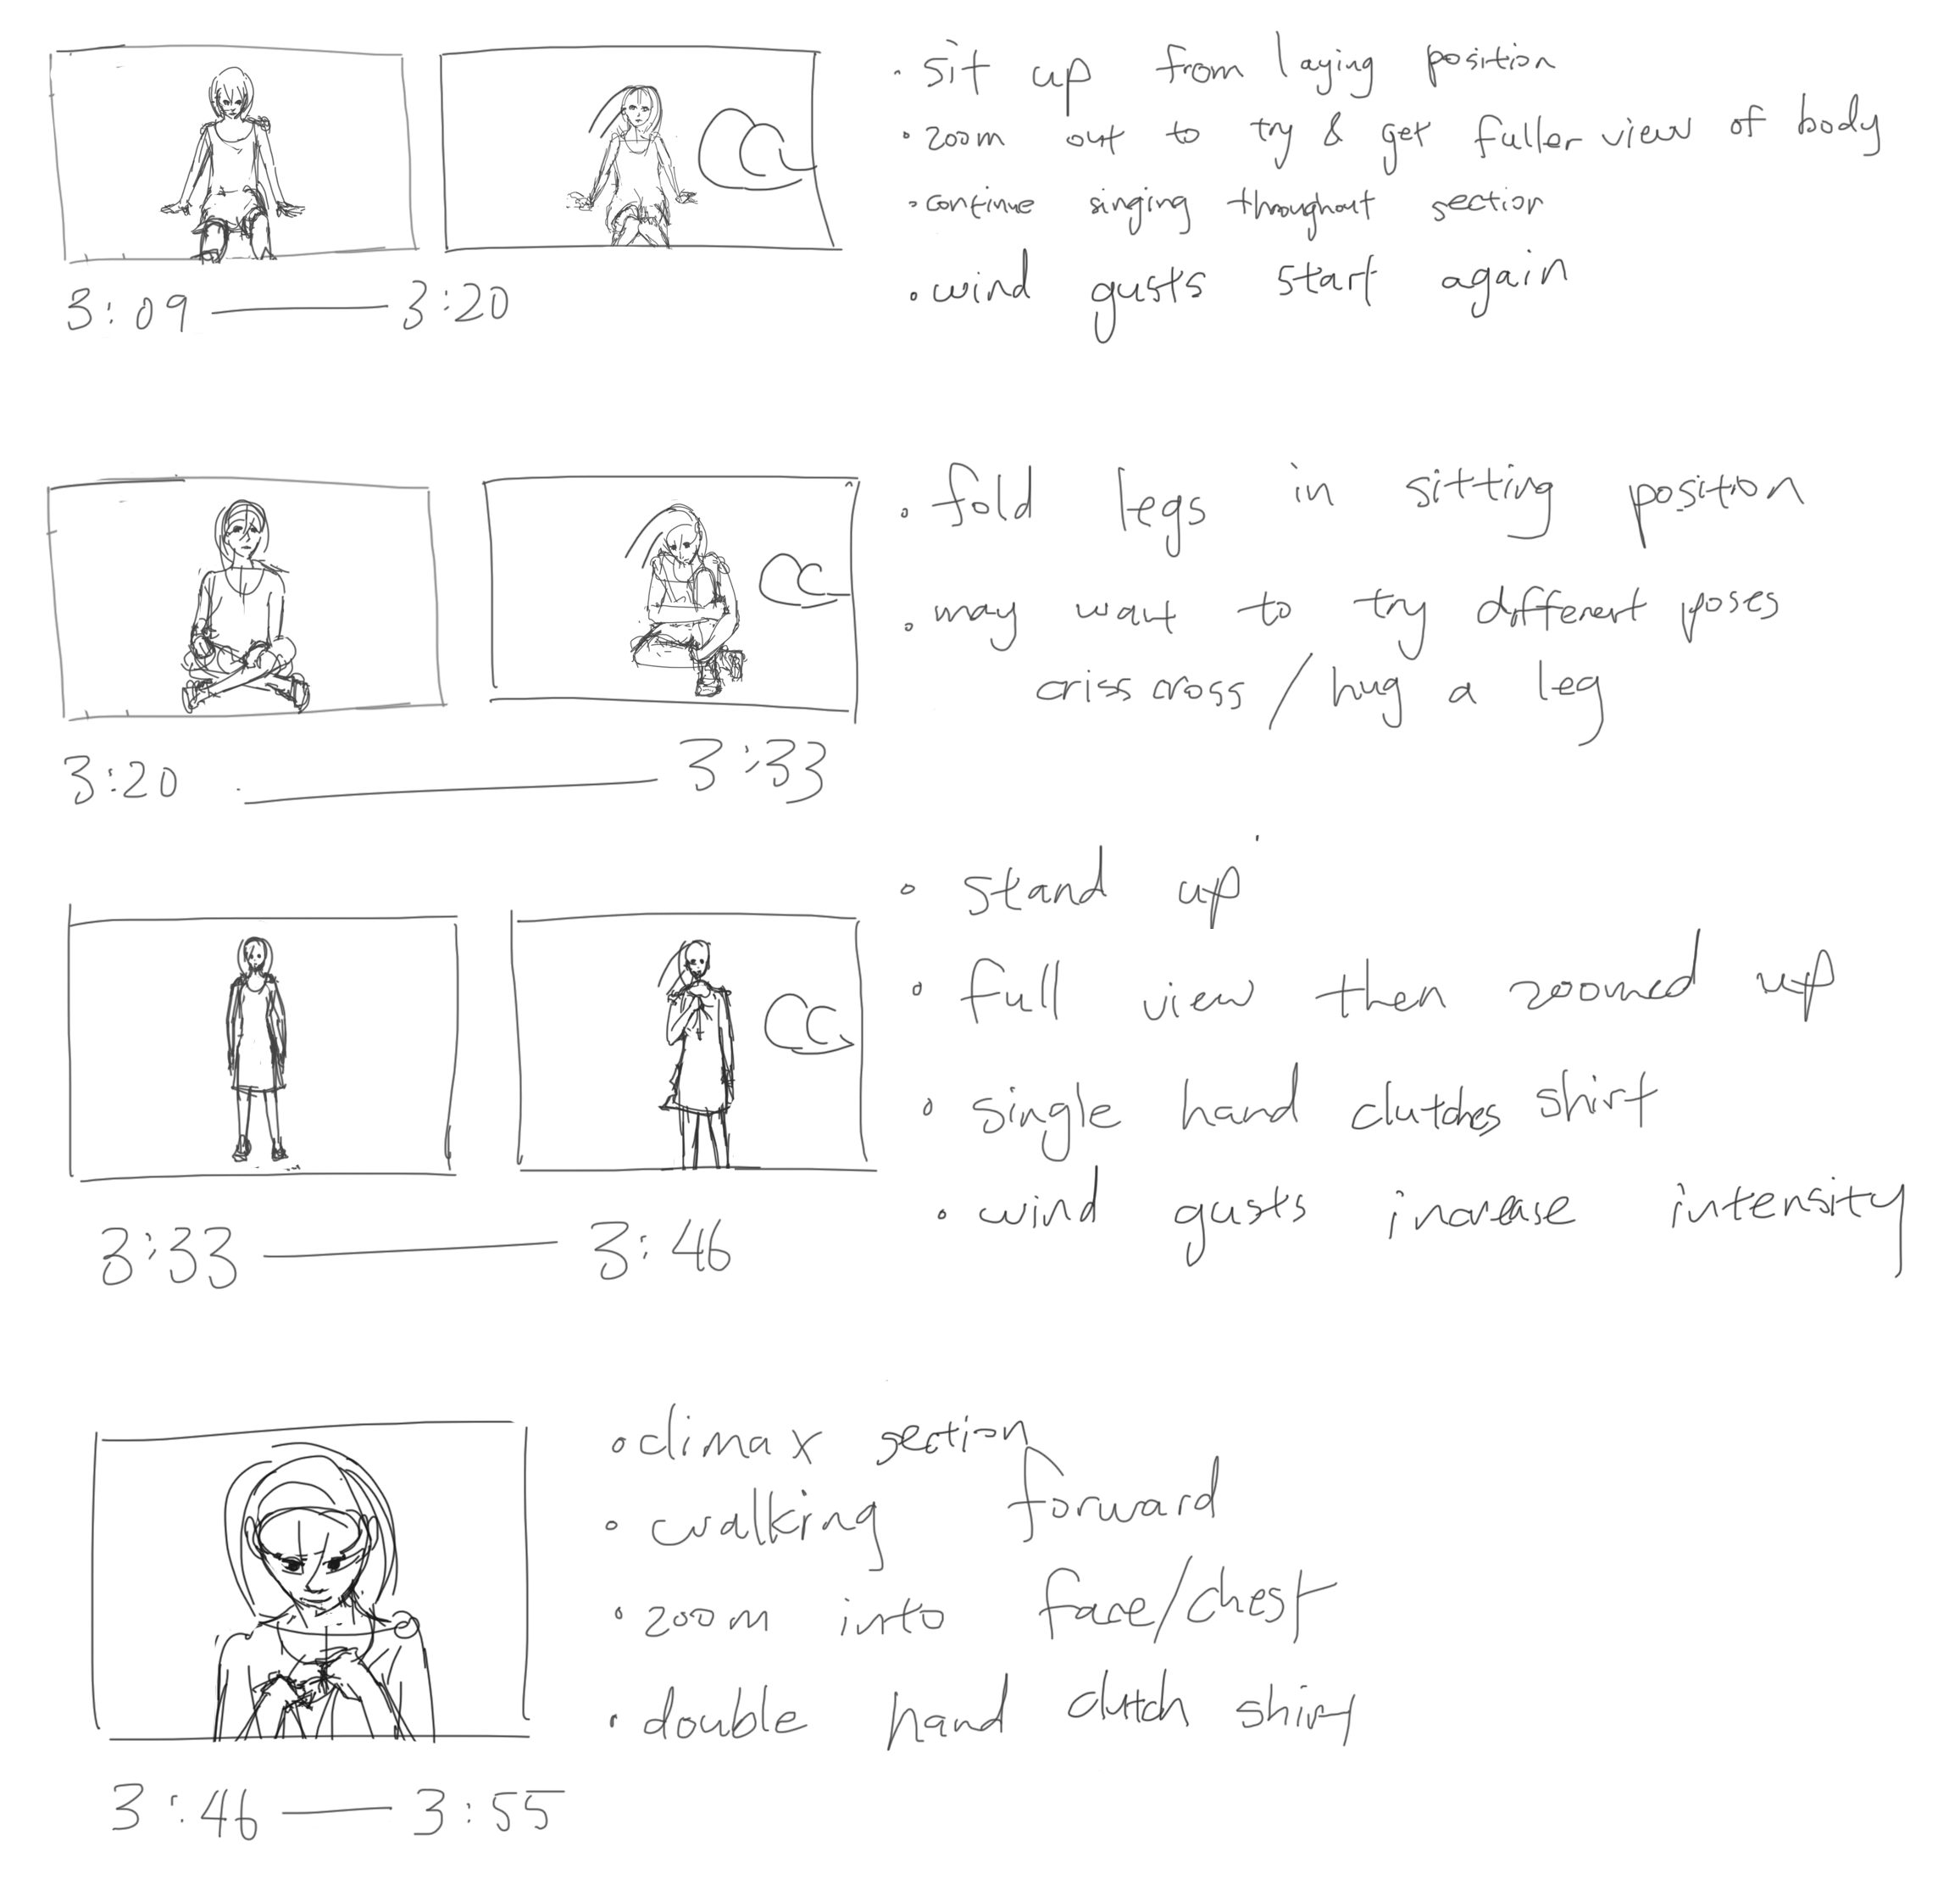 • sit up from laying position
• zoom out to try & get fuller view of body
• continue singing throughout section
• wind gusts start again
3:09 — 3:20
• fold legs in sitting position
• may want to try different poses
criss cross / hug a leg
3:20 — 3:33
• stand up
• full view then zoomed up
• single hand clutches shirt
• wind gusts increase intensity
3:33 — 3:46
• climax section
• walking forward
• zoom into face/chest
• double hand clutch shirt
3:46 — 3:55